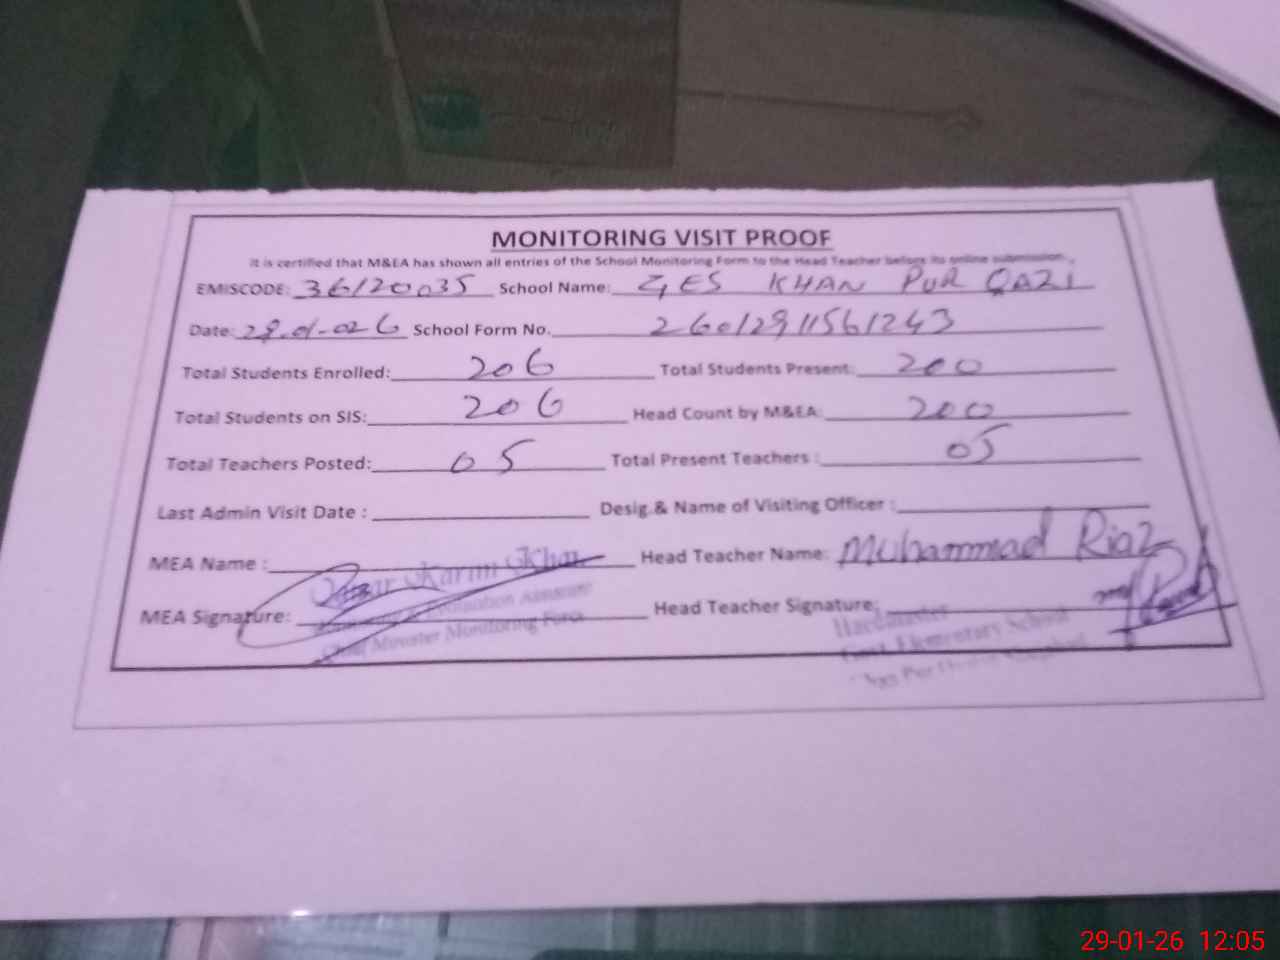 MONITORING VISIT PROOF
It is certified that M&EA has shown all entries of the School Monitoring Form to the Head Teacher before its online submission.
EMISCODE: 36120035 School Name: GES KHAN PUR QAZI
Date: 29.01-026 School Form No. 26012911561243
Total Students Enrolled: 206 Total Students Present: 200
Total Students on SIS: 206 Head Count by M&EA: 200
Total Teachers Posted: 05 Total Present Teachers : 05
Last Admin Visit Date : Desig.& Name of Visiting Officer :
MEA Name : Head Teacher Name: Muhammad Riaz
Karim Khan
MEA Signature: Head Teacher Signature:
& Evaluation Assistant
Chief Minister Monitoring Force
Headmaster
Govt. Elementary School
29-01-26 12:05